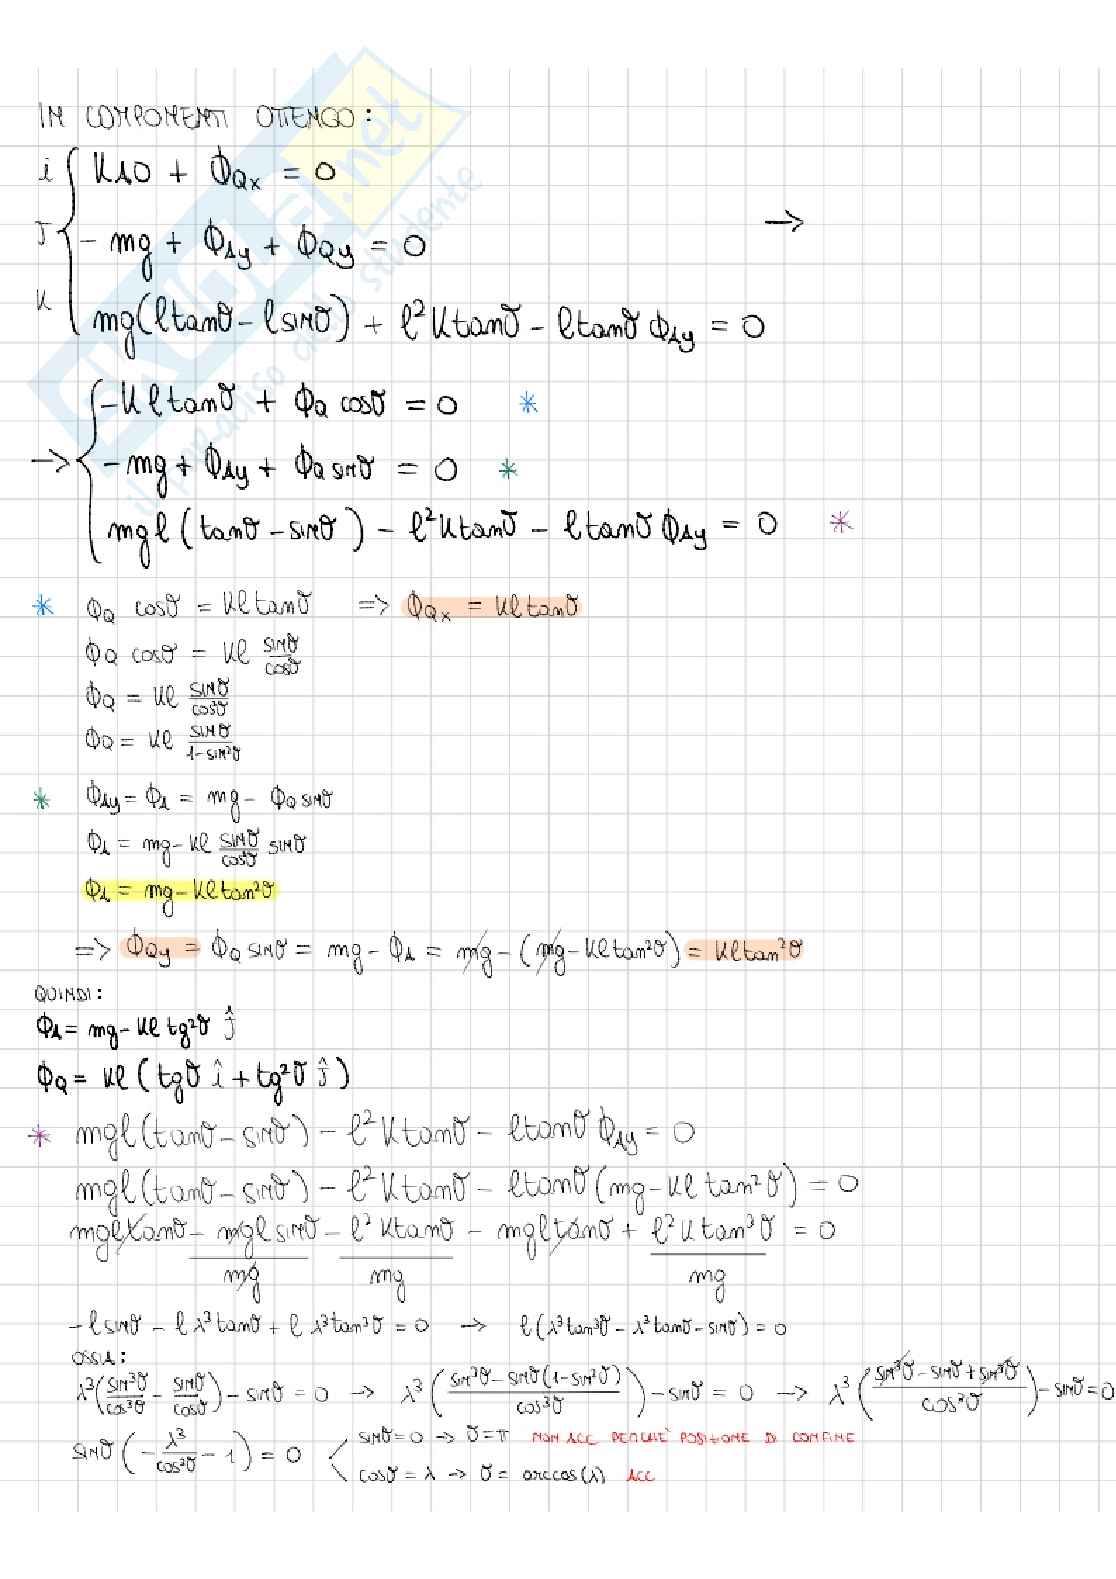 IN COMPONENTI OTTENGO:
i { KAO + ϕQx = 0
J - mg + ϕAy + ϕQy = 0 →
K mg(ℓtanϑ - ℓsinϑ) + ℓ²Ktanϑ - ℓtanϑ ϕAy = 0
-Kℓtanϑ + ϕQ cosϑ = 0 *
→ { - mg + ϕAy + ϕQ sinϑ = 0 *
mgℓ(tanϑ - sinϑ) - ℓ²Ktanϑ - ℓtanϑ ϕAy = 0 *
* ϕQ cosϑ = Kℓtanϑ => ϕQx = Kℓtanϑ
ϕQ cosϑ = Kℓ sinϑ/cosϑ
ϕQ = Kℓ sinϑ/cos²ϑ
ϕQ = Kℓ sinϑ/1-sin²ϑ
* ϕAy = ϕA = mg - ϕQ sinϑ
ϕA = mg - Kℓ sinϑ/cos²ϑ sinϑ
ϕA = mg - Kℓtan²ϑ
=> ϕQy = ϕQ sinϑ = mg - ϕA = mg - (mg - Kℓtan²ϑ) = Kℓtan²ϑ
QUINDI:
ϕA = mg - Kℓ tg²ϑ ĵ
ϕQ = Kℓ (tgϑ î + tg²ϑ ĵ)
* mgℓ(tanϑ - sinϑ) - ℓ²Ktanϑ - ℓtanϑ ϕAy = 0
mgℓ(tanϑ - sinϑ) - ℓ²Ktanϑ - ℓtanϑ(mg - Kℓ tan²ϑ) = 0
mgℓtanϑ - mgℓsinϑ/mg - ℓ²Ktanϑ/mg - mgℓtanϑ + ℓ²Ktan³ϑ/mg = 0
-ℓsinϑ - ℓλ³tanϑ + ℓλ³tan³ϑ = 0 → ℓ(λ³tan³ϑ - λ³tanϑ - sinϑ) = 0
OSSIA:
λ³(sin³ϑ/cos³ϑ - sinϑ/cosϑ) - sinϑ = 0 → λ³(sin³ϑ - sinϑ(1-sin²ϑ)/cos³ϑ) - sinϑ = 0 → λ³(sin³ϑ - sinϑ + sin³ϑ/cos³ϑ) - sinϑ = 0
sinϑ(-λ³/cos³ϑ - 1) = 0 < sinϑ = 0 → ϑ = π NON ACC PERCHÉ POSIZIONE DI CONFINE
cosϑ = λ → ϑ = arccos(λ) ACC
SKUOLA.net
il paradiso dello studente